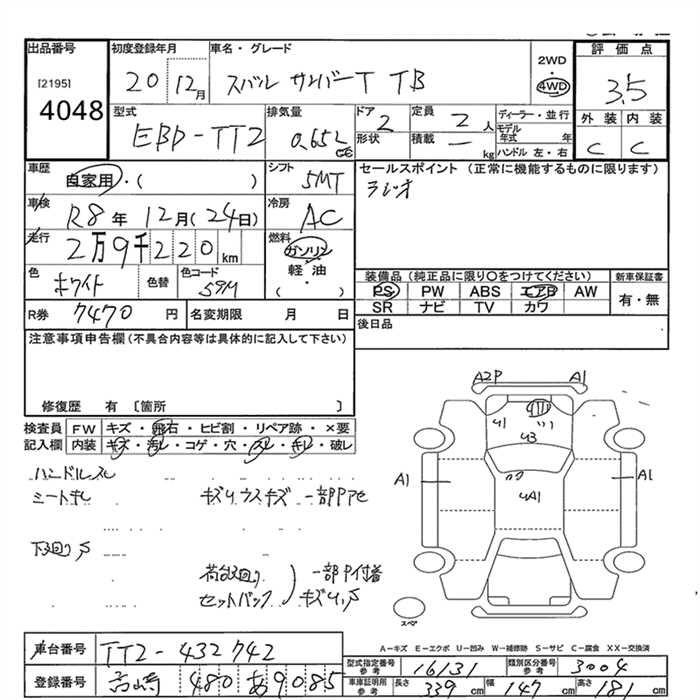 出品番号 初度登録年月 車名・グレード 2WD 評価点
[2195] 20 12月 スバル サンバーT TB 4WD 3.5
4048
型式 排気量 ドア 定員 ディーラー・並行 外装 内装
EBD-TT2 0.65L 2 2人 モデル年式 年 C C
cc 形状 積載 — kg ハンドル 左・右
車歴 自家用・( ) シフト 5MT セールスポイント (正常に機能するものに限ります)
車検 R8年12月(24日) 冷房 AC ラジオ
走行 2万9千220km 燃料 ガソリン
色 ホワイト 色替 色コード 59M 軽油 ( )
装備品 (純正品に限り○をつけてください) 新車保証書
PS PW ABS エアB AW 有・無
SR ナビ TV カワ
R券 7470円 名変期限 月 日 後日品
注意事項申告欄(不具合内容等は具体的に記入して下さい)
修復歴 有 [箇所 ]
検査員 FW キズ・飛石・ヒビ割・リペア跡・×要
記入欄 内装 キズ・汚レ・コゲ・穴・スレ・キレ・破レ
ハンドルスレ
シートキレ キズU ウスキズ 一部Pアセ
下廻りS
荷台廻り 一部P付着
セットバック キズU,S
A2P A1
U1
U3
A1 A1
UA1
スペア
A-キズ E-エクボ U-凹み W-補修跡 S-サビ C-腐食 XX-交換済
車台番号 TT2-432742 型式指定番号 参考 16131 類別区分番号 参考 3004
登録番号 高崎 480 あ9085 車庫証明用 参考 長さ 339cm 幅 147cm 高さ 181cm